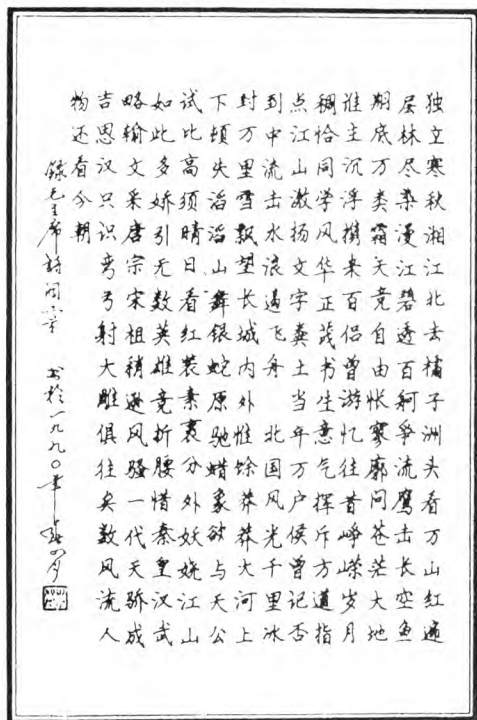 独立寒秋湘江北去橘子洲头看万山红遍
层林尽染漫江碧透百舸争流鹰击长空鱼
翔底万类霜天竞自由怅寥廓问苍茫大地
谁主沉浮携来百侣曾游忆往昔峥嵘岁月
稠恰同学风华正茂书生意气挥斥方遒指
点江山激扬文字粪土当年万户侯曾记否
到中流击水浪遏飞舟 北国风光千里冰
封万里雪飘望长城内外惟馀莽莽大河上
下顿失滔滔山舞银蛇原驰蜡象欲与天公
试比高须晴日看红装素裹分外妖娆江山
如此多娇引无数英雄竞折腰惜秦皇汉武
略输文采唐宗宋祖稍逊风骚一代天骄成
吉思汉只识弯弓射大雕俱往矣数风流人
物还看今朝
录毛主席诗词 书於一九九〇年